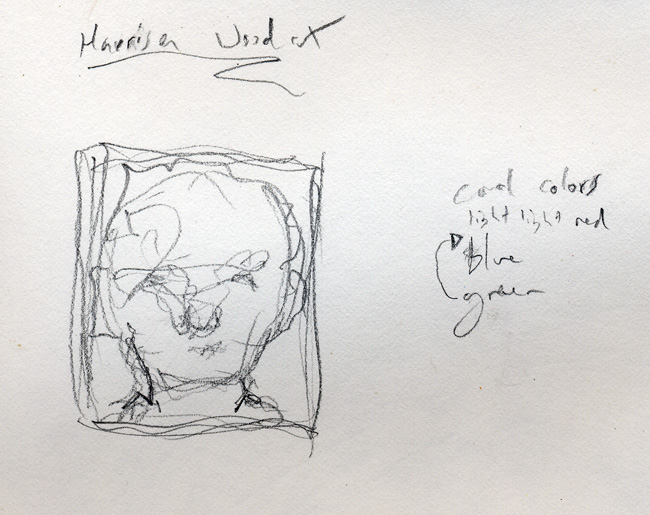 Harrison Woodcut
cool colors
light light red
blue
green